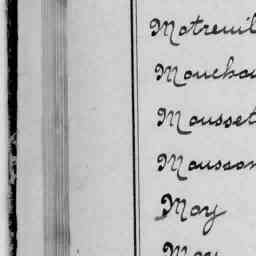 Motreuil
Mouchou
Mousset
Mousson
May
May